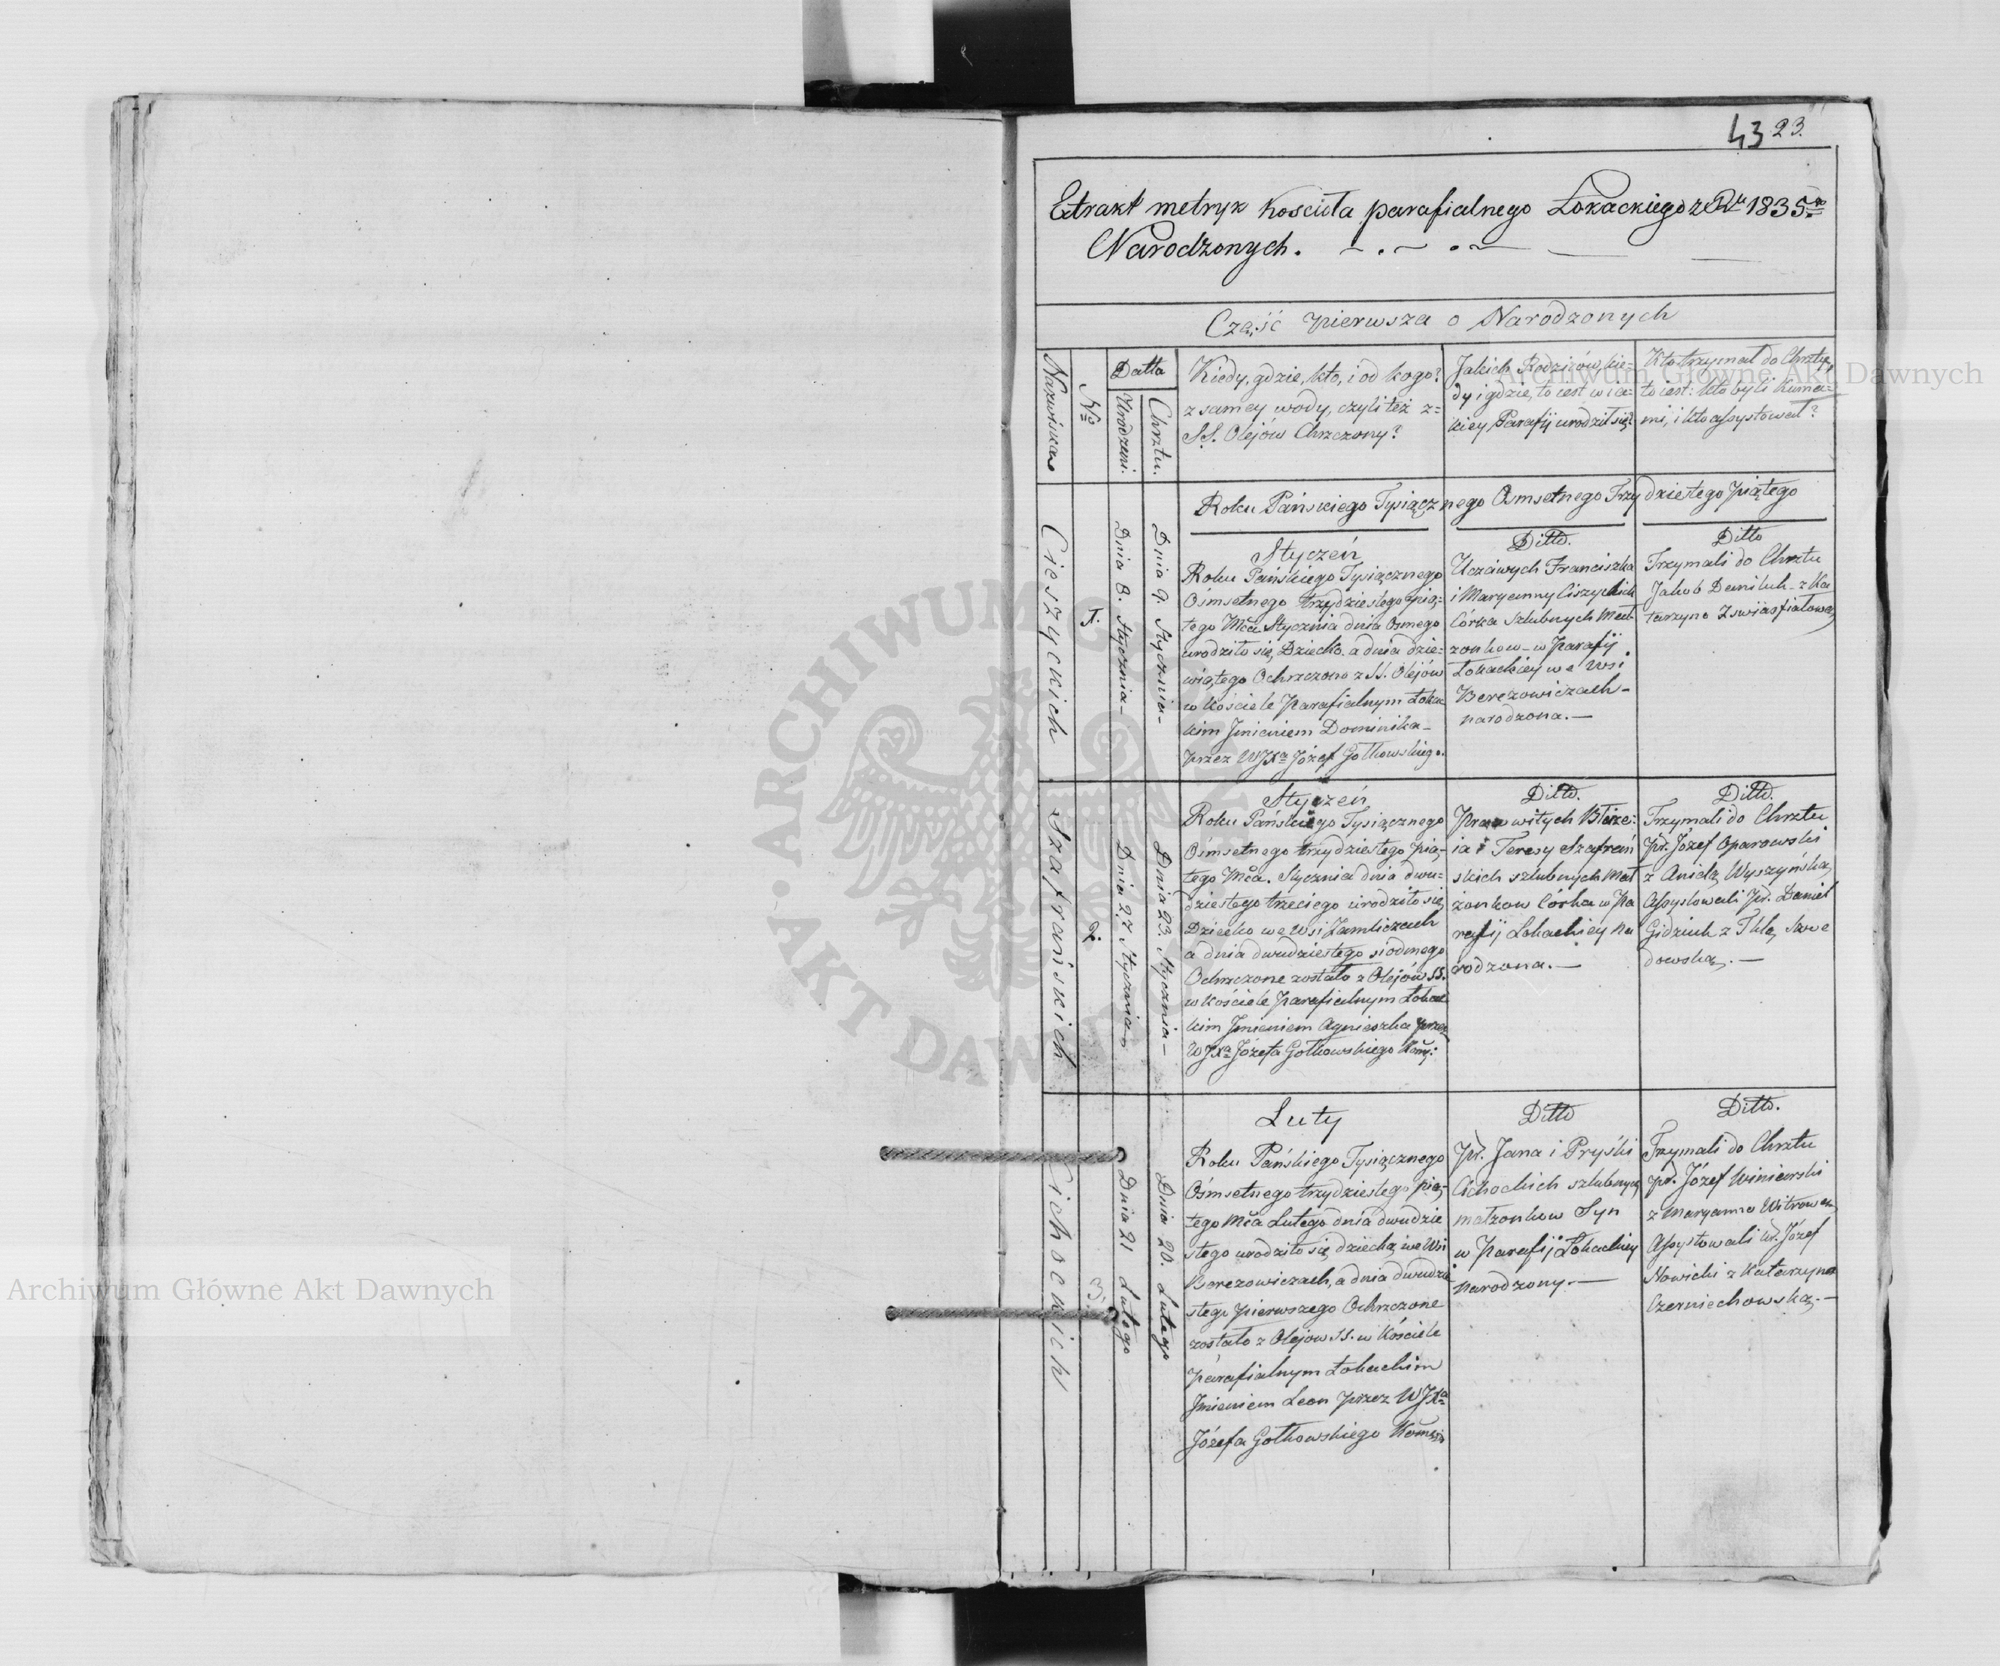 43 23.
Extrakt metryk Kościoła parafialnego Łokackiego z Ru 1835go
Narodzonych.
Część pierwsza o Narodzonych
Nazwiska
No
Datta
Urodzeni.
Chrztu.
Kiedy, gdzie, kto, i od kogo?
z samey wody, czyli też z=
S.S. Olejów Chrzczony?
Jakich Rodziców, kie=
dy i gdzie, to iest w ia=
kiey Parafij urodził się?
Kto trzymał do Chrztu,
to iest: kto byli Kuma=
mi, i kto assystował?
Roku Pańskiego Tysiącznego Osmsetnego Trzydziestego piątego
Cieszyckich
1.
Dnia 8. Stycznia-
Dnia 9. Stycznia-
Styczeń
Roku Pańskiego Tysiącznego
Ośmsetnego trzydziestego pią=
tego Mca Stycznia dnia Osmego
urodziło się, Dziecko. a dnia dzie=
wiątego Ochrzczono z SS. Olejów
w Kościele parafialnym Łokac
kim Jmieniem Dominika-
przez WJXa Józef Gotkowskiego.
Ditto.
Uczciwych Franciszka
i Maryanny Ciszyckich
Córka szlubnych Mał
żonkow- w Parafij
Łokackiey we Wsi
Berezowiczach-
narodzona.-
Ditto
Trzymali do Chrztu
Jakób Daniluk- z Ka
tarzyną
Szafrańskich
2.
Dnia 27 Stycznia
Dnia 23. Stycznia-
Styczeń
Roku Pańskiego Tysiącznego
Osmsetnego trzydziestego pią=
tego Mca. Stycznia dnia dwu=
dziestego trzeciego urodziło się
Dziecko we Wsi Zamliczach
a dnia dwudziestego siodmego
Ochrzczone zostało z Olejów SS.
w Kościele parafialnym Łokac
kim Jmieniem Agnieszka przez
WJXa Józefa Gotkowskiego Kom:
Ditto.
Prawowitych Błaże=
ia i Teresy Szafrań
skich szlubnych Mał
żonkow Córka w Pa
rafij Łokackiey na
rodzona.-
Ditto.
Trzymali do Chrztu
Pr. Józef Oparowski
z Anielą Wyszyńską,
Assystowali Pr. Daniel
Gidziuk z Teklą, Swe
dowską.-
Cichockich
3.
Dnia 21 Lutego
Dnia 20. Lutego
Luty
Roku Pańskiego Tysiącznego
Ośmsetnego trzydziestego pią=
tego Mca Lutego dnia dwudzie
stego urodziło się dziecko, we Wsi
Berezowiczach, a dnia dwudzie
stego pierwszego Ochrzczone
zostało z Olejow SS. w Kościele
Parafialnym Łokackim
Jmieniem Leon przez WJXa
Józefa Gotkowskiego
Ditto
Pr. Jana i Pryśki
Cichockich szlubnych
małżonkow Syn
w Parafij Łokackiey
narodzony.-
Ditto.
Trzymali do Chrztu
pr. Józef Winiewski
z Maryanną
Assystowali Pr. Józef
Nowicki z Katarzyną
Czerniechowską.-
Archiwum Główne Akt Dawnych
Archiwum Główne Akt Dawnych